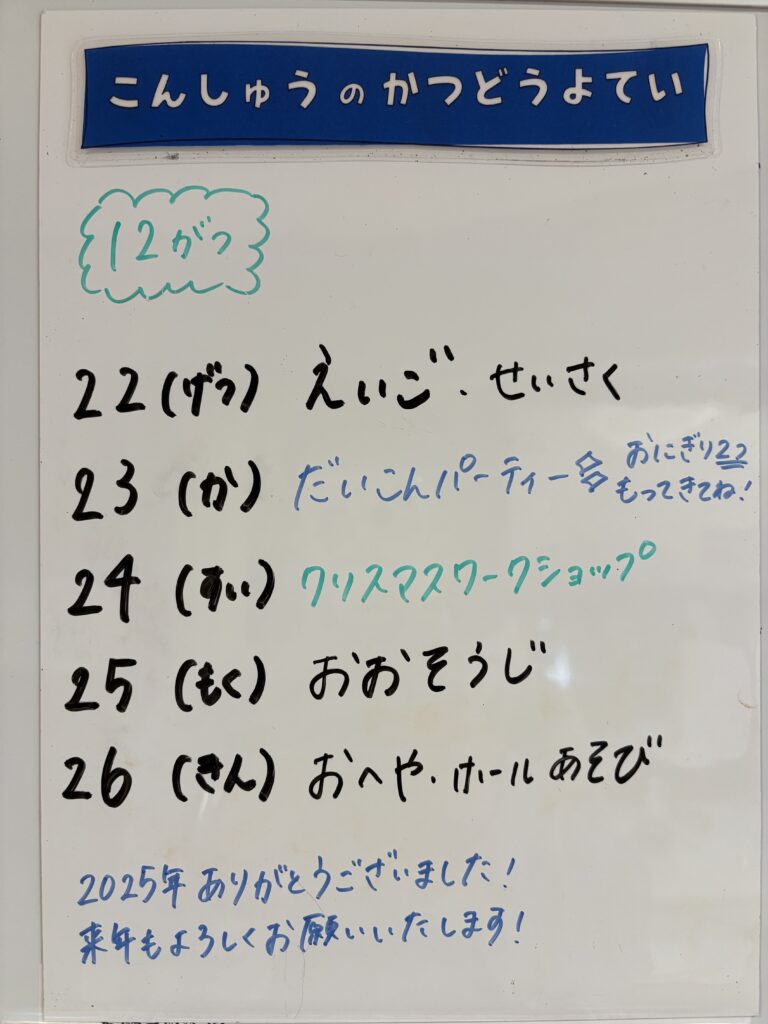 こんしゅうのかつどうよてい
12がつ
22(げつ) えいご.せいさく
23(か) だいこんパーティー おにぎり2つ
もってきてね!
24(すい) クリスマスワークショップ
25(もく) おおそうじ
26(きん) おへや.ホールあそび
2025年ありがとうございました!
来年もよろしくお願いいたします!